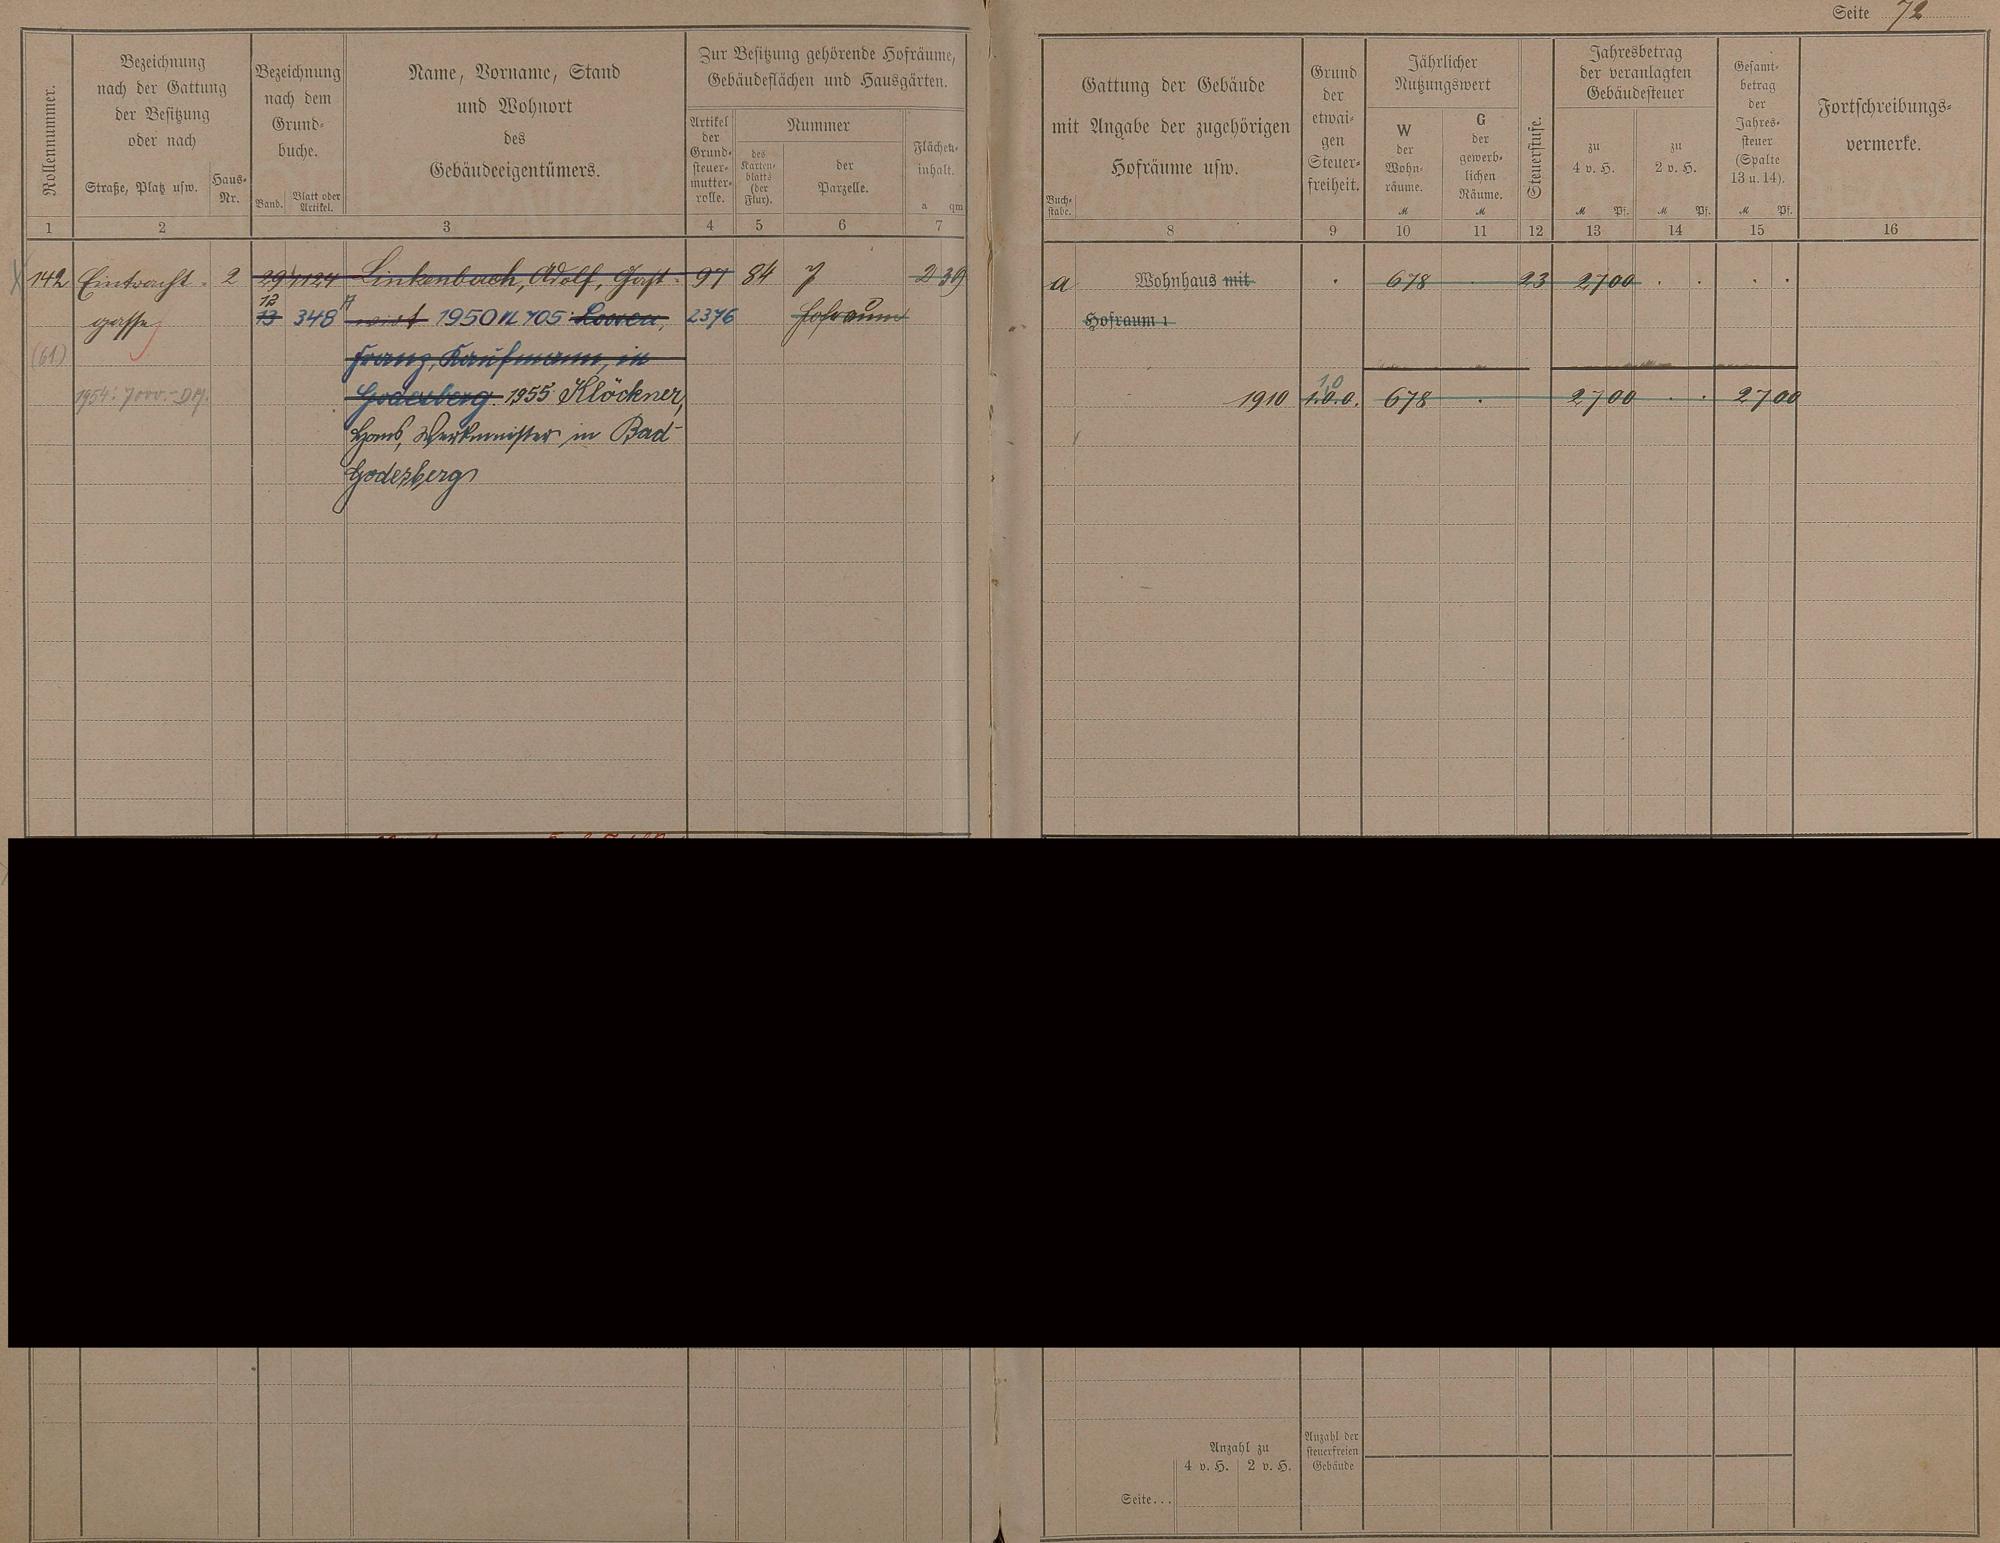 Seite 72
Rollennummer.
Bezeichnung
nach der Gattung
der Besitzung
oder nach
Straße, Platz usw.
Haus-
Nr.
Bezeichnung
nach dem
Grund-
buche.
Band.
Blatt oder
Artikel.
Name, Vorname, Stand
und Wohnort
des
Gebäudeeigentümers.
Zur Besitzung gehörende Hofräume,
Gebäudeflächen und Hausgärten.
Artikel
der
Grund-
steuer-
mutter-
rolle.
Nummer
des
Karten-
blatts
(der
Flur).
der
Parzelle.
Flächen-
inhalt.
a qm
Gattung der Gebäude
mit Angabe der zugehörigen
Hofräume usw.
Buch-
stabe.
Grund
der
etwai-
gen
Steuer-
freiheit.
Jährlicher
Nutzungswert
W
der
Wohn-
räume.
M
G
der
gewerb-
lichen
Räume.
M
Steuerstufe.
Jahresbetrag
der veranlagten
Gebäudesteuer
zu
4 v. H.
M Pf.
zu
2 v. H.
M Pf.
Gesamt-
betrag
der
Jahres-
steuer
(Spalte
13 u. 14).
M Pf.
Fortschreibungs-
vermerke.
1 2 3 4 5 6 7 8 9 10 11 12 13 14 15 16
142 Eintracht- 2 29 1124 Linkenbach, Adolf, Gast- 97 84 7 2 39 a Wohnhaus mit 678 23 27 00
gasse 12
13 348 A wirt 1950 N 705: Loeven, 2376 Hofraum Hofraum
(61) Franz, Kaufmann, in
1954: 7000.- DM. Godesberg. 1955: Klöckner, 1910 1.0.0. 678 27 00 27 00
Hans, Werkmeister in Bad
Godesberg
Anzahl zu
4 v. H. 2 v. H.
Anzahl der
steuerfreien
Gebäude
Seite...